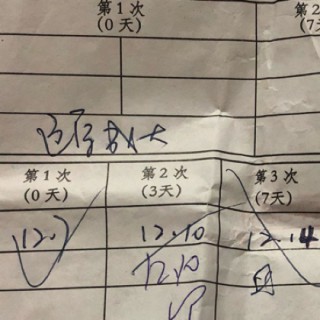 第1次 第2
(0天) (7天
第1次 第2次 第3次
(0天) (3天) (7天)
12.7 12.10 12.14
12.10